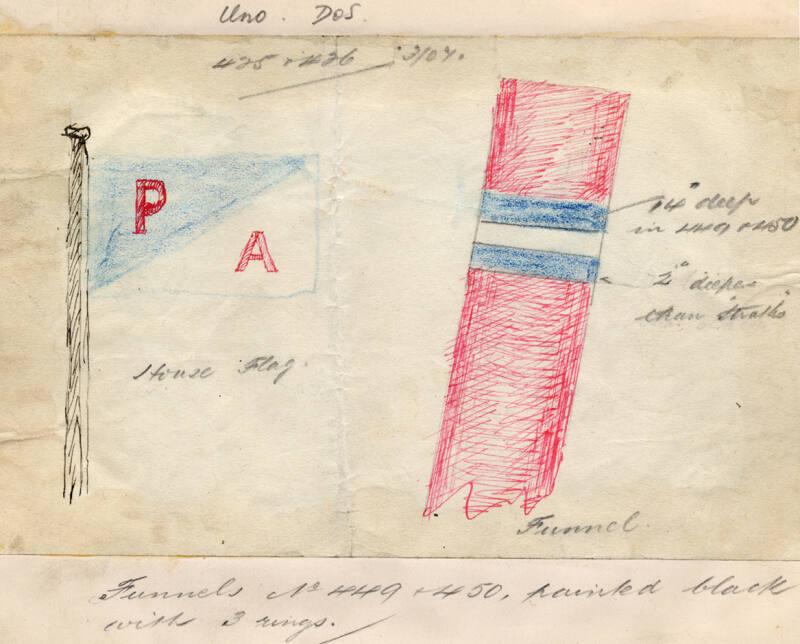 Uno. Dos.
425 + 426 3/07.
P
A
14" deep
in 449 + 450
2" deeper
than "Straths"
House Flag.
Funnel
Funnels Nº 449 + 450, painted black
with 3 rings.